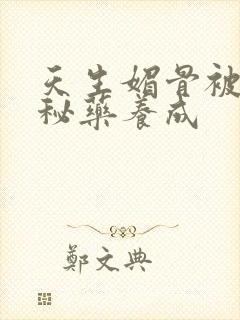 天生媚骨被
秘藥養成
鄭文典